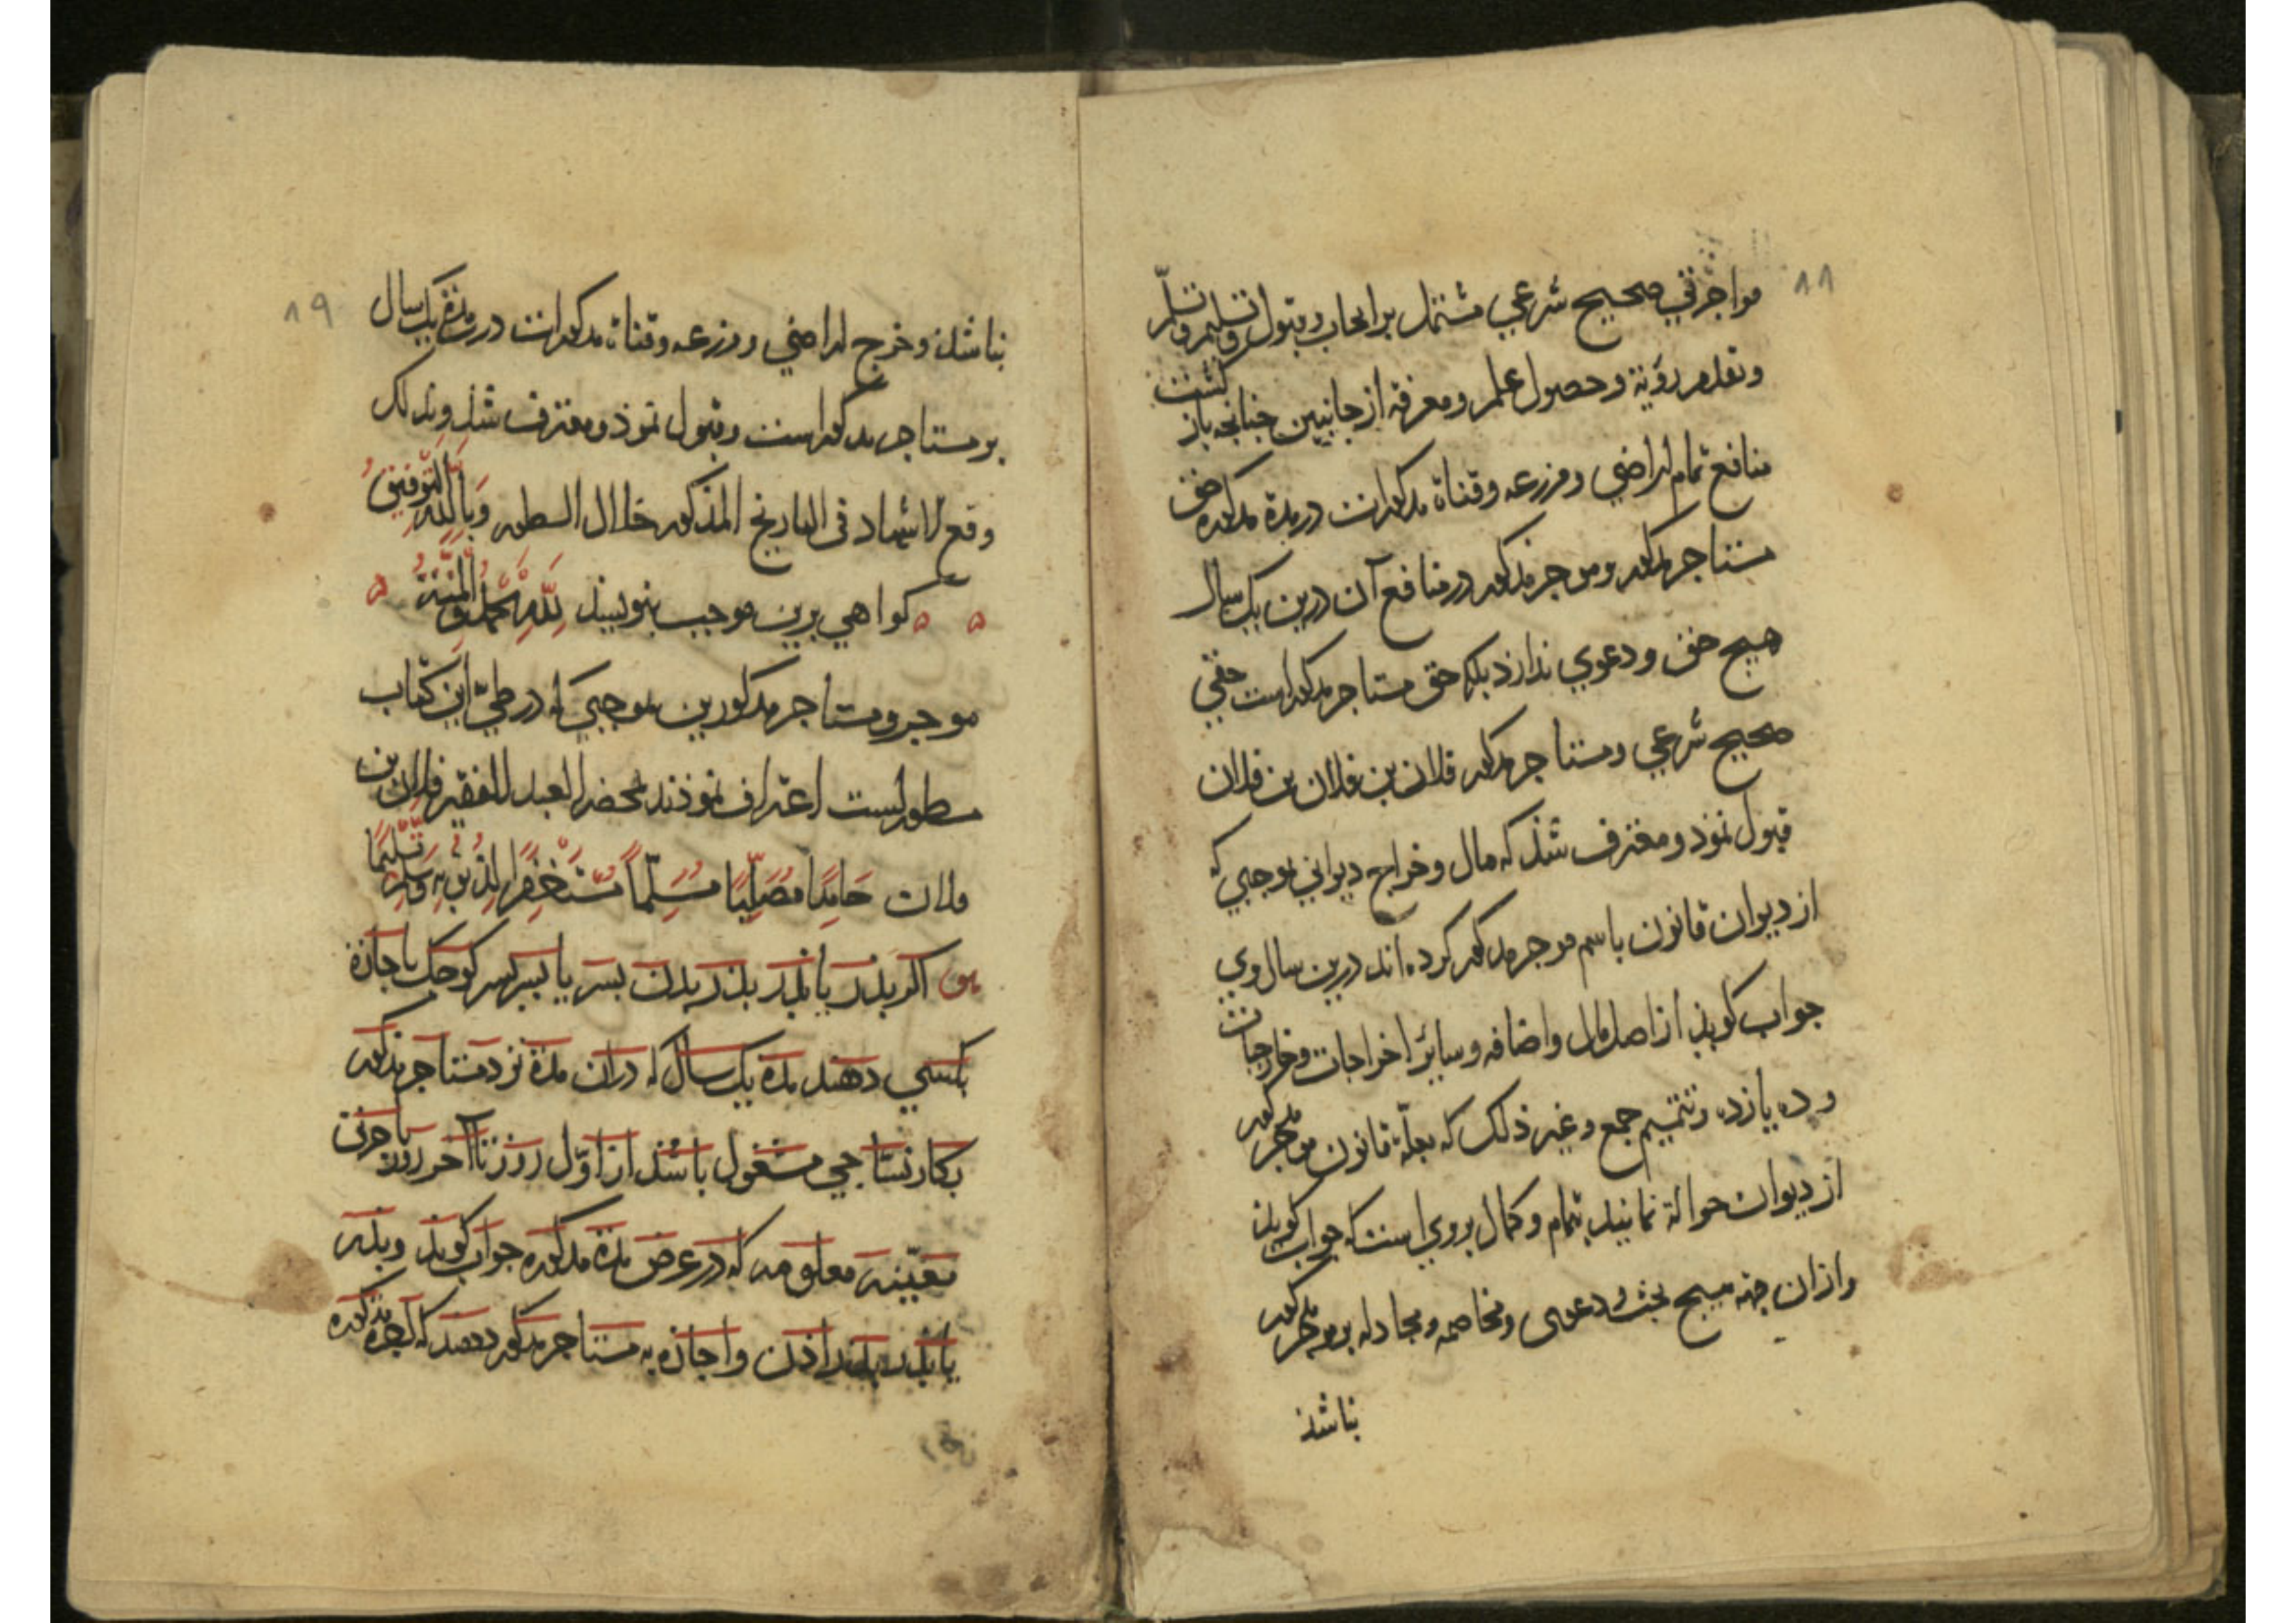 ٨٨
مواجرتي صحيح شرعي مشتمل بر ايجاب و قبول و تسليم و تسلّم
و تقدم رؤية و حصول علم و معرفة از جانبين چنانچه باز كشت
منافع تمام اراضي و مزرعه و قناة مذكورات در مدة مذكوره حق
مستاجر مذكور و موجر مذكور در منافع آن درين يك سال
هيچ حق و دعوي ندارذ بلكه حق مستاجر مذكور است حقي
صحيح شرعي و مستاجر مذكور فلان بن فلان بن فلان
قبول نموذ و معترف شذ كه مال و خراج ديواني بموجبي كه
از ديوان قانون باسم موجر مذكور كرده اند درين سال وي
جواب كويذ از اصل مال و اضافه و ساير اخراجات و خارجيات
و ده يازده و تتميم جمع و غير ذلك كه بعلّة قانون موجر مذكور
از ديوان حوالة نمايند بتمام و كمال بروي است كه جواب كويذ
و ازان جهة هيچ بحث و دعوى و مخاصمه و مجادله بر موجر مذكور
نباشذ
٨٩
نباشذ و خرج اراضي و مزرعه و قناة مذكورات درمدة يك سال
بر مستاجر مذكور است و قبول نموذ و معترف شذ وبذلك
وقع الاشهاد في التاريخ المذكور خلال السطور وَبِاللّٰهِ التَّوفيقُ
كواهي برين موجب بنويسند لِلّٰهِ الحَمْدُ وَالْمِنَّةُ
موجر و مستاجر مذكورين بموجبي كه در طيّ اين كتاب
مسطور است اعتراف نموذند بمحضر العبد الفقير فلان بن
فلان حَامِدًا مُصَلِّيًا مُسَلِّمًا مُسْتَغْفِرًا لِذُنُوبِهِ وَسَلَّمَ تَسْلِيمًا
اكر بذر يا بذر بذر بدن بسر يا بسر بسر كوجك باجازة
بكسي دهند مدة يك سال كه دران مدة نزد مستاجر مذكور
بكار نسّاجي مشغول باشذ از اوّل روز تا آخر روز باجرتي
معيّنه معلومه كه در عرض مدة مذكوره جواب كويذ و بذر
يا بذر بذر اذن و اجازه به مستاجر مذكور دهند كه اجرة مذكوره